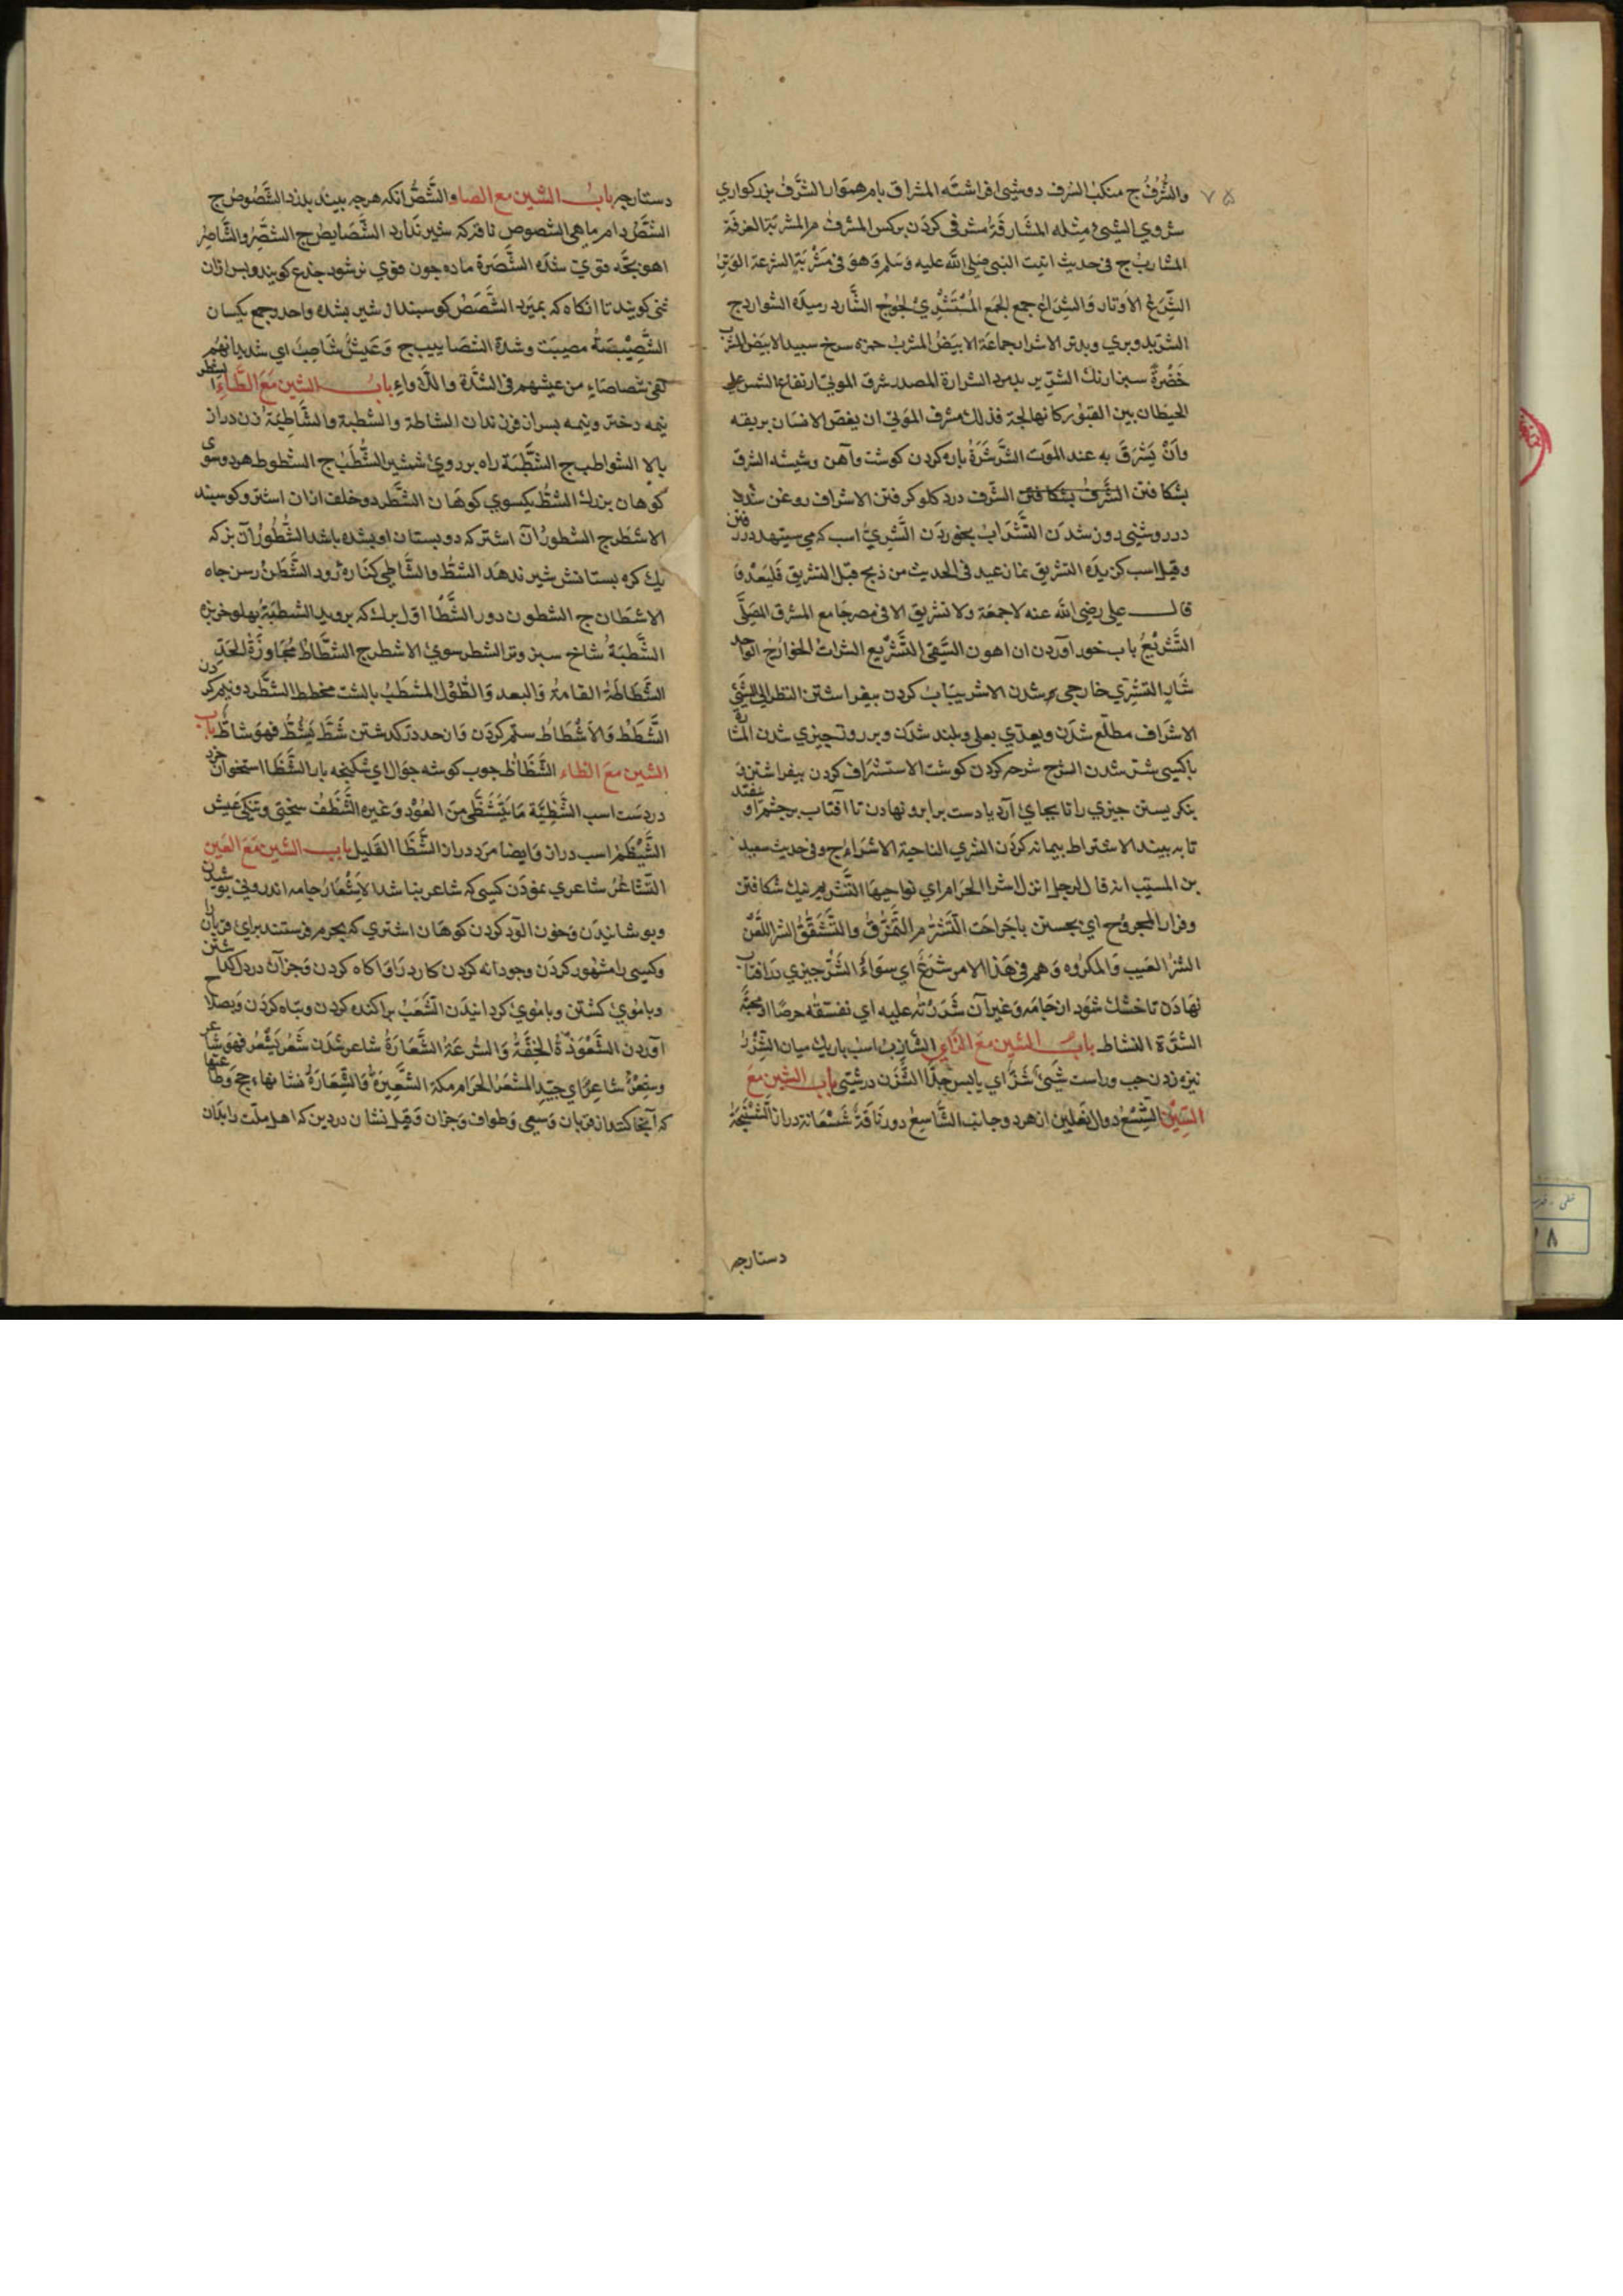 ۷۵
والشُّرُفُ ج منکبُ الشرف دوشی افراشته المشراق بام همتوان الشَّرَفُ بزرکواری
شروی الشیئ مثله المشارقة مشرفی کردن برکس المشرف م المشربة الغرفة
المشارب ج فی حدیث اتیت النبی صلی الله علیه وسلم وهو فی مشربة الشرعة الوتر
الشِّرَعُ الاوتار والشراع جمع الجمع المُسْتَشْرِيْ لجوج الشارد رمیده الشوارد ج
الشرید وبری وبدتر الاشرار جماعة الابیض المشرب حمزه سرخ سپید الابیض المشرب
خضرةً سبزارنك الشریر بدمرد الشرارة المصدر شرق الموتی ارتفاع الشمس علی
الحیطان بین القبور کانها لجة فذلك شرف الموتی ان یغص الانسان بریقه
وان یَشْرَقَ به عند الموت الشَّرشَرَةُ پاره کردن کوشت وآهن وشیشه الشرق
بشکافتن الشرف درد کلو کرفتن الاشراف روغن شدن
در روشنی درون شدن التَّشْرَابُ بخوردن الشَّرِيُّ اسب که می ستیهد در رفتن
وقیل اسب کزیده التشریق نماز عید فی الحدیث من ذبح قبل التشریق فلیعد وَ
قال علی رضی الله عنه لا جمعة ولا تشریق الا فی مصر جامع المشرق المصلّی
التَّشْرِيْعُ باب خور آوردن ان اهون السقی التشریع الشرات الخوارج الواحد
شارٍ التشری خارجی شدن الاشریباب کردن بیفراشتن النظر الی الشیئ
الاشراف مطلّع شدن ویعدّی بعلی وبلند شدن وبر روتجیزی شدن المشارّة
باکسی شتر شدن الشرح شرحه کردن کوشت الاستشراف کردن بیفراشتن وَ
بنکریستن چیزی را تا بجای آرد یا دست برابرو نهادن تا آفتاب بر چشم او نیفتد
تا به بیند الاشتراط پیمانه کردن الشری الناحیة الاشراء ج وفی حدیث سعید
بن المسیب انه قال لرجل انزل اشراء الحرام ای نواحیها التشریم نیك شکافتن
وفرار المجروح ای بجستن باجراحت التشرّم التمزّق والتَّشَقُّقُ الشر اللص
الشرّ العیب والمکروه وهم فی هذا الامر شَرَعٌ ای سواءٌ الشَّرُّ چیزی بر آفتاب
نهادن تا خشك شود از جامه وغیر آن شَرَرْتُهُ علیه ای نفسقه حرصًا او محبّة
الشرّة النشاط باب الشین مع الزای الشازب اسب باریك میان الشزر
نیزه زدن چب وراست شیئٌ شَزٌّ ای یابس جدًّا الشَّزَن درشتی باب الشین مع
السِّیْن الشِّسْعُ دوال نعلین از هر دو جانب الشَّاسِعُ دور ناقةٌ شَسْعانة دراز
دستارچه
دستارچه باب الشین مع الصاد الشَّصُّ انکه هر چه بیند بدزد الشُّصُوصُ ج
الشَّصُّ دام ماهی الشصوص ناقه که شیر ندارد الشَّصَایِصُ ج الشصر والشاصر
اهو بچه قوی شده الشَّصَرَة ماده چون قوی تر شود جذع کویند وپس ازان
ثنی کویند تا انکاه که بمیرد الشَّصَصُ کوسبندان شیر بشده واحد وجمع یکسان
الشَّصِیْصَةُ مصیبت وشدة الشصایب ج وَعَیْشٌ شَاصِبٌ ای شدید انهم
لفی شصاصاءِ من عیشهم فی الشدّة واللأواءِ باب الشین مَعَ الطَّاءِ الشطر
نیمه دختر ونیمه پسر از فرزندان الشاطة والشطبة والشَّاطِبَة زن دراز
بالا الشواطب ج الشَّطْبَة راه بر روی شمشیر الشُّطَبُ ج الشطوط هر دو سوی
کوهان بزرك الشَّطُّ یکسوی کوهان الشَّطْر دو خلف ازان اشتر وکوسبند
الاشطر ج الشطور آن اشتر که دو پستان او بشده باشد الشَّطُوْرُ آن بز که
یك کره پستانش شیر ندهد الشَّطُّ والشَّاطِی کناره رود الشَّطَنُ رسن چاه
الاشطان ج الشطون دور الشَّطْأُ اول برك که بروید الشطبة پهلو خربزه
الشَّطْبَةُ شاخ سبز وتر الشطر سوی الاشطر ج الشَّطَاطُ مُجَاوَزَةُ الحدّ
الشَّطَاطَة القامة والبعد والطُّوْل المُشَطَّبُ بالشت مخطط الشَّطْر دو نیم کردن
الشَّطَطُ وَالاشْطَاطُ ستم کردن وَاز حد درکذشتن شَطَّ یَشُطُّ فهو شاطٌّ باب
الشین مع الظاء الشَّظَاظُ چوب کوشه جوال ای شکنجه بار الشَّظَا استخوان خرد
در دست اسب الشَّظِیَّة مَا یَتَشَظَّی من العُوْد وغیره الشَّظَفُ سختی وتنکی عیش
الشَّیْظَمُ اسب دراز وَایضا مرد دراز الشَّظَا القلیل باب الشین مَعَ العَین
التشاعُرُ شاعری نمودن کسی که شاعر نباشد الاِشْعَارُ جامه اندرونی
وبوشانیدن وخون الود کردن کوهان اشتری که بحرم فرستند برای قربان
وکسی را مشهور کردن وجودانه کردن کارد رَا وَاکاه کردن وَجز آن در دل کذاشتن
وباموی کشتن وباموی کردانیدن الشَّعْبُ پراکنده کردن وتباه کردن وبصلاح
آوردن الشَّعْوَذَةُ الخِفَّةُ والسُّرعَةُ الشَّعَارَةُ شاعر شدن شَعُرَ یَشْعُرُ فهو شاعر
وشِعْرٌ شاعِرٌ ای جیّد المشعر الحرام مکة الشَّعِیْرَة والشِّعَارَة نشانهاء حج
که آنجا کنند از قربان وسعی وطواف وجزان وَقیل نشان در دین که اهل ملت را بدان